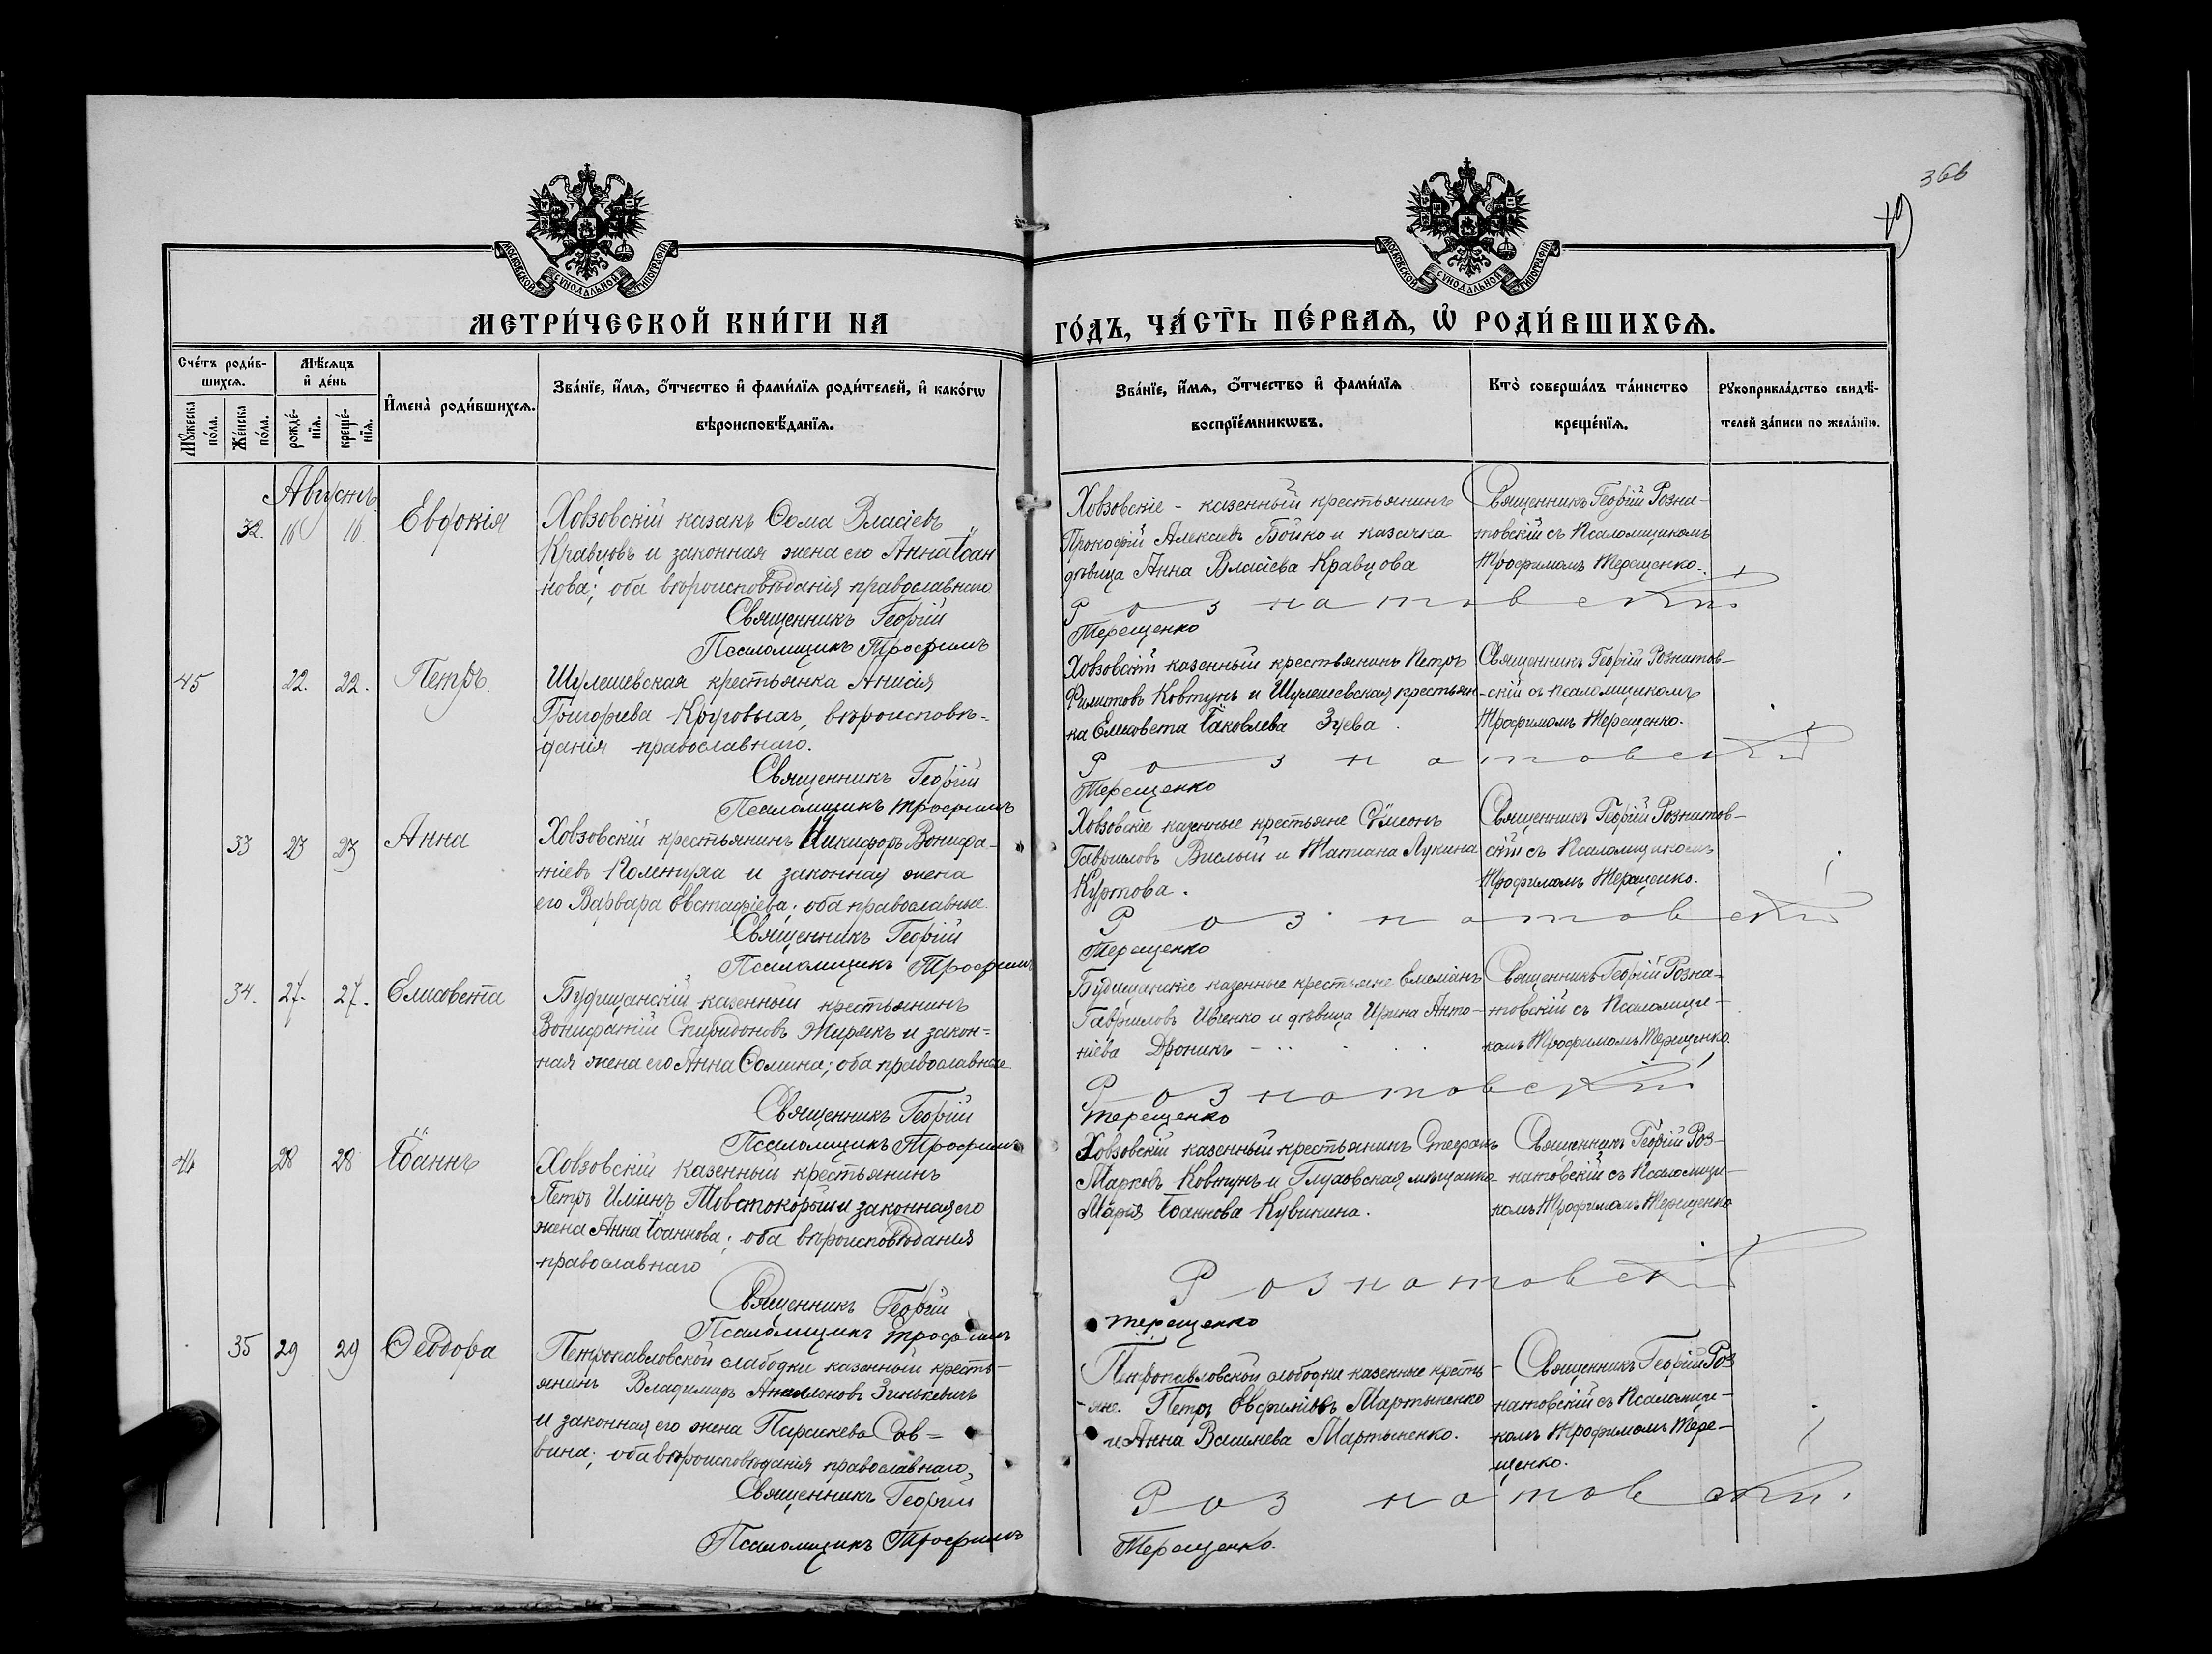 366
МОСКОВСКОЙ СУНОДАЛЬНОЙ ТИПОГРАФІИ
МОСКОВСКОЙ СУНОДАЛЬНОЙ ТИПОГРАФІИ
МЕТРИ́ЧЕСКОЙ КНИ́ГИ НА
ГО́ДЪ, ЧА́СТЬ ПЕ́РВАЯ, Ѿ РОДИ́ВШИХСЯ.
Сче́тъ роди́в-
шихся.
Мѣ́сяцъ
и де́нь
Мꙋжеска по́ла.
Же́нска по́ла.
рожде́-
нїя.
креще́-
нїя.
И҆мена̀ роди́вшихся.
Зва́нїе, и҆́мя, ѻ҆́тчество и҆ фами́лїя роди́телей, и҆ како́гѡ
вѣроисповѣ́данїя.
Зва́нїе, и҆́мя, ѻ҆́тчество и҆ фами́лїя
воспрїе́мникѡвъ.
Кто̀ соверша́лъ та́инство
креще́нїя.
Рꙋкоприкла́дство свидѣ́-
телей за́писи по жела́нїю.
Августъ
32. 16 16. Евдокія
Ховзовскій казакъ Ѳома Власіевъ
Кравцовъ и законная жена его Анна Іоан
нова; оба вѣроисповѣданія православнаго
Священникъ Георгій
Псаломщикъ Трофимъ
Ховзовскіе - казенный крестьянинъ
Прокофій Алексѣевъ Бойко и казачка
дѣвица Анна Власіева Кравцова
Священникъ Георгій Розна-
товскій съ Псаломщикомъ
Трофимомъ Терещенко.
Розnатовскій
Терещенко
45 22. 22. Петръ.
Шулешевская крестьянка Анисія
Григорьева Круговыхъ, вѣроисповѣ-
данія православнаго.
Священникъ Георгій
Псаломщикъ Трофимъ
Ховзовскій казенный крестьянинъ Петръ
Филиповъ Ковтунъ и Шулешевская крестьян-
ка Елисовета Іаковлева Зуева.
Священникъ Георгій Рознатов-
скій съ псаломщикомъ
Трофимомъ Терещенко.
Рознатовскій
Терещенко
33 23 23 Анна
Ховзовскій крестьянинъ Никифоръ Вонифа-
тіевъ и законная жена
его Варвара Евстафіева; оба православные.
Священникъ Георгій
Псаломщикъ Трофимъ
Ховзовскіе казенные крестьяне Сѵмеонъ
Гавриловъ Вислый и Татіана Лукина
Куртова.
Священникъ Георгій Рознатов-
скій съ Псаломщикомъ
Трофимомъ Терещенко.
Рознатовскій
Терещенко
34. 27. 27. Елисовета
Будищанскій казенный крестьянинъ
Вонифатій Спиридоновъ Жирякъ и закон-
ная жена его Анна Ѳомина; оба православные
Священникъ Георгій
Псаломщикъ Трофимъ
Будищанскіе казенные крестьяне Емеліанъ
Гавриловъ Ивченко и дѣвица Ирина Анто-
ніева Дроникъ
Священникъ Георгій Розна-
товскій съ Псаломщи-
комъ Трофимомъ Терещенко.
Рознатовскій
Терещенко
46 28 28 Іоаннъ
Ховзовскій казенный крестьянинъ
Петръ Иліинъ Товстокорый и законная его
жена Анна Іоаннова; оба вѣроисповѣданія
православнаго
Священникъ Георгій
Псаломщикъ Трофимъ
Ховзовскій казенный крестьянинъ Стефанъ
Марковъ Ковтунъ и Глуховская мѣщанка
Марія Іоаннова Кувикина.
Священникъ Георгій Роз-
натовскій съ Псаломщи-
комъ Трофимомъ Терещенко
Рознатовскій
Терещенко
35 29 29 Ѳеодора
Петропавловской слабодки казенный кресть-
янинъ Владимиръ Зинькевичъ
и законная его жена Параскева Сав=
вина; оба вѣроисповѣданія православнаго,
Священникъ Георгій
Псаломщикъ Трофимъ
Петропавловской слободки казенные кресть-
-яне. Петръ Евфиміовъ Мартыненко
и Анна Василиева Мартыненко.
Священникъ Георгій Роз
натовскій съ Псаломщи-
комъ Трофимомъ Тере-
щенко.
Рознатовскій.
Терещенко.